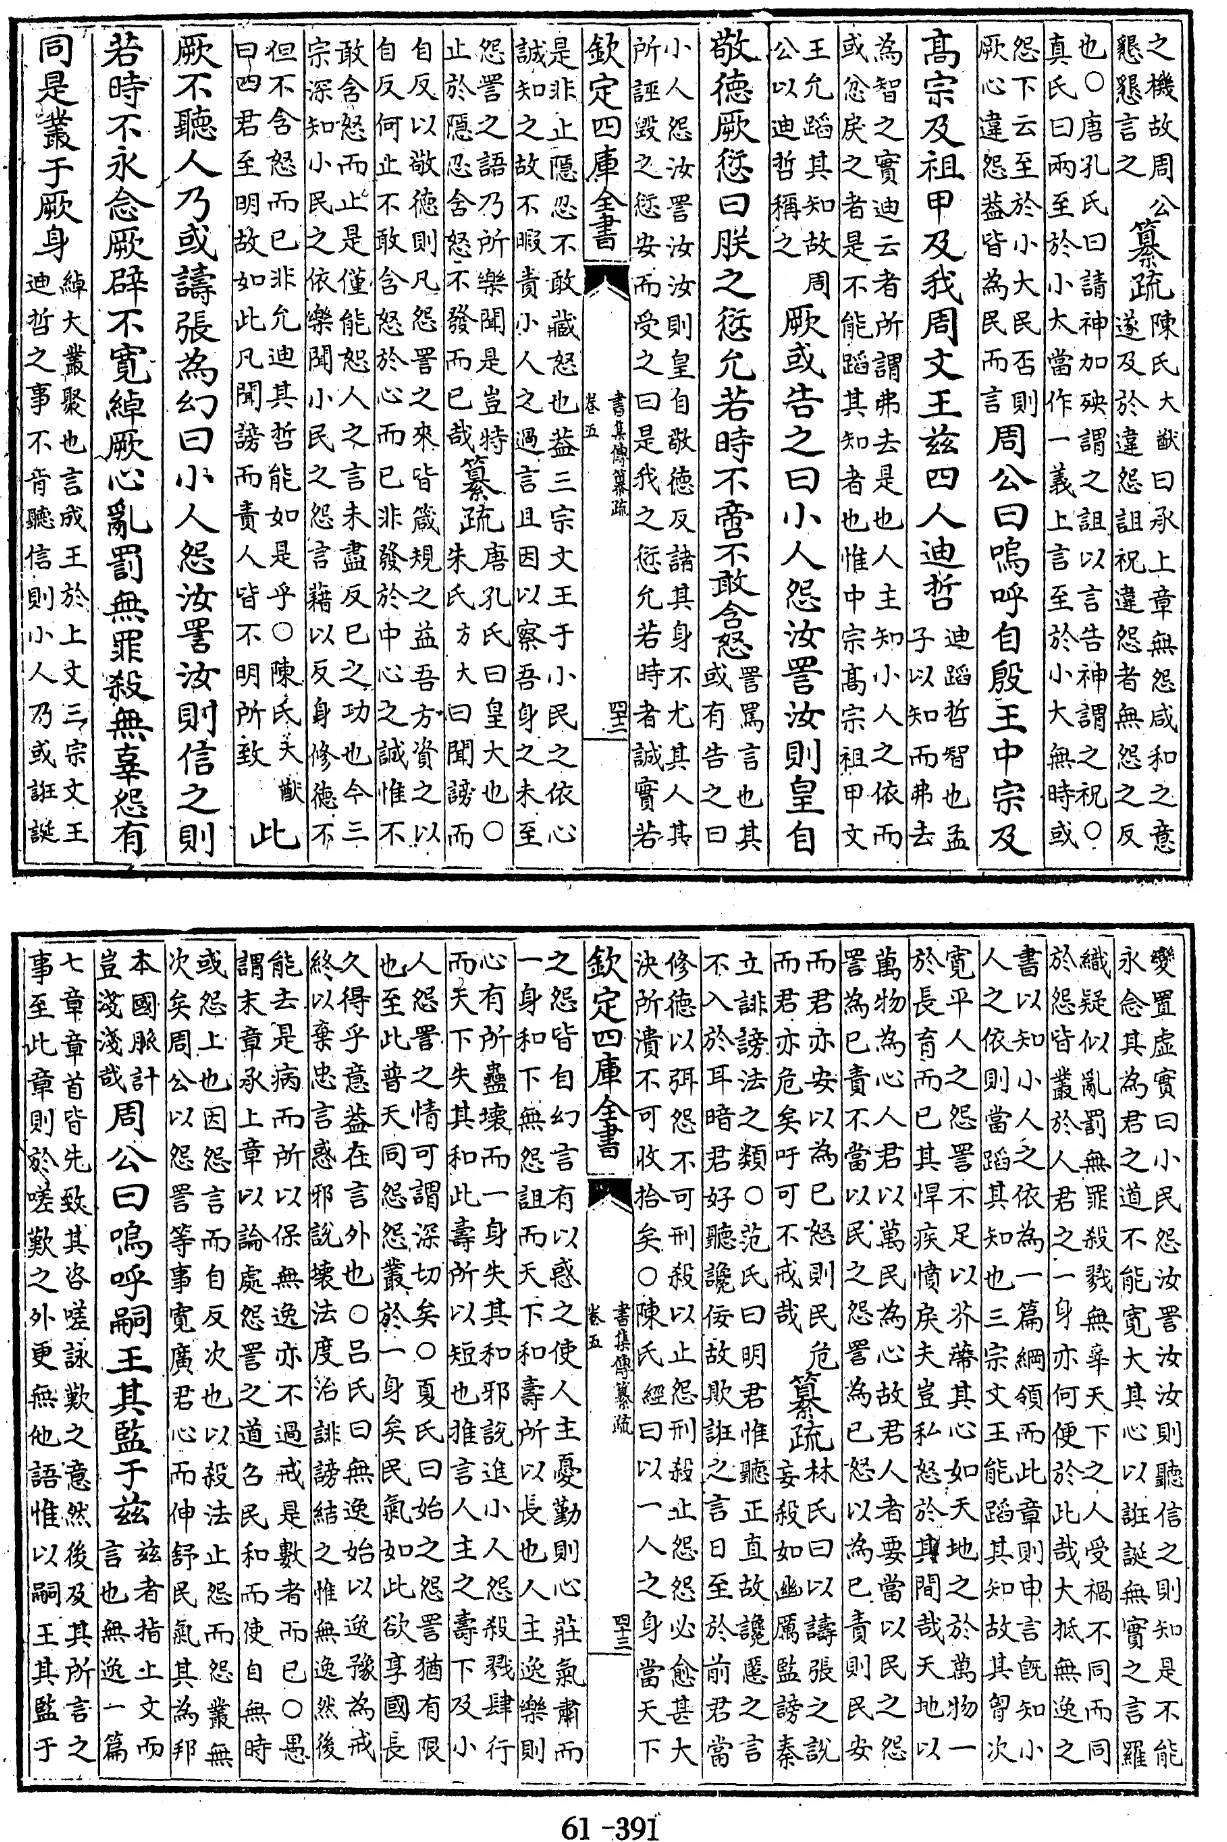 之機故周公
懇懇言之
纂疏
陳氏大猷曰承上章無怨咸和之意
遂及於違怨詛祝違怨者無怨之反
也○唐孔氏曰請神加殃謂之詛以言告神謂之祝○
真氏曰兩至於小大當作一義上言至於小大無時或
怨下云至於小大民否則
厥心違怨益皆為民而言
周公曰嗚呼自殷王中宗及
高宗及祖甲及我周文王兹四人迪哲
迪蹈哲智也孟
子以知而弗去
為智之實迪云者所謂弗去是也人主知小人之依而
或忿戾之者是不能蹈其知者也惟中宗高宗祖甲文
王允蹈其知故周
公以迪哲稱之
厥或告之曰小人怨汝詈汝則皇自
敬德厥愆曰朕之愆允若時不啻不敢含怒
詈罵言也其
或有告之曰
小人怨汝詈汝汝則皇自敬德反諸其身不尤其人其
所誣毀之愆安而受之曰是我之愆允若時者誠實若
欽定四庫全書
書集傳纂疏
卷五
四十二
是非止隱忍不敢藏怒也葢三宗文王于小民之依心
誠知之故不暇責小人之過言且因以察吾身之未至
怨詈之語乃所樂聞是豈特
止於隱忍含怒不發而已哉
纂疏
唐孔氏曰皇大也○
朱氏方大曰聞謗而
自反以敬德則凡怨詈之來皆箴規之益吾方資之以
自反何止不敢含怒於心而已非發於中心之誠惟不
敢含怒而止是僅能恕人之言未盡反已之功也今三
宗深知小民之依樂聞小民之怨言藉以反身修德不
但不含怒而已非允迪其哲能如是乎○陳氏大猷
曰四君至明故如此凡聞謗而責人皆不明所致
此
厥不聽人乃或譸張為幻曰小人怨汝詈汝則信之則
若時不永念厥辟不寬綽厥心亂罰無罪殺無辜怨有
同是叢于厥身
綽大叢聚也言成王於上文三宗文王
迪哲之事不肯聽信則小人乃或誑誕
變置虛實曰小民怨汝詈汝汝則聽信之則知是不能
永念其為君之道不能寬大其心以誑誕無實之言羅
織疑似亂罰無罪殺戮無辜天下之人受禍不同而同
於怨皆叢於人君之一身亦何便於此哉大抵無逸之
書以知小人之依為一篇綱領而此章則申言既知小
人之依則當蹈其知也三宗文王能蹈其知故其胷次
寬平人之怨詈不足以芥蔕其心如天地之於萬物一
於長育而已其悍疾憤戾夫豈私怒於其間哉天地以
萬物為心人君以萬民為心故君人者要當以民之怨
詈為已責不當以民之怨詈為已怒以為已責則民安
而君亦安以為已怒則民危
而君亦危矣吁可不戒哉
纂疏
林氏曰以譸張之說
妄殺如幽厲監謗秦
立誹謗法之類○范氏曰明君惟聽正直故讒慝之言
不入於耳暗君好聽讒佞故欺誑之言日至於前君當
修德以弭怨不可刑殺以止怨刑殺止怨怨必愈甚大
決所潰不可收拾矣○陳氏經曰以一人之身當天下
欽定四庫全書
書集傳纂疏
卷五
四十三
之怨皆自幻言有以惑之使人主憂勤則心莊氣肅而
一身和下無怨詛而天下和壽所以長也人主逸樂則
心有所蠱壞而一身失其和邪說進小人怨殺戮肆行
而天下失其和此壽所以短也推言人主之壽下及小
人怨詈之情可謂深切矣○夏氏曰始之怨詈猶有限
也至此普天同怨怨叢於一身矣民氣如此欲享國長
久得乎意葢在言外也○呂氏曰無逸始以逸豫為戒
終以棄忠言惑邪說壞法度治誹謗結之惟無逸然後
能去是病而所以保無逸亦不過戒是數者而已○愚
謂末章承上章以論處怨詈之道召民和而使自無時
或怨上也因怨言而自反次也以殺法止怨而怨叢無
次矣周公以怨詈等事寬廣君心而伸舒民氣其為邦
本國脈計
豈淺淺哉
周公曰嗚呼嗣王其監于兹
兹者指上文而
言也無逸一篇
七章章首皆先致其咨嗟詠歎之意然後及其所言之
事至此章則於嗟歎之外更無他語惟以嗣王其監于
61-391